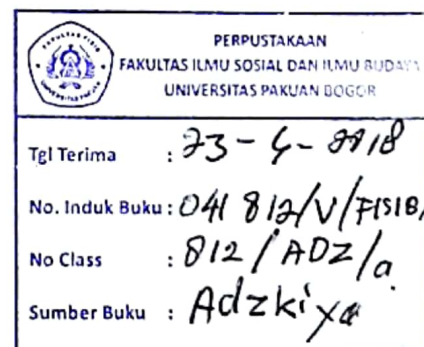 PERPUSTAKAAN
FAKULTAS ILMU SOSIAL DAN ILMU BUDAYA
UNIVERSITAS PAKUAN BOGOR
Tgl Terima : 23-4-2018
No. Induk Buku : 041 812/V/FISIB/
No Class : 812/ADZ/a
Sumber Buku : Adzkiya